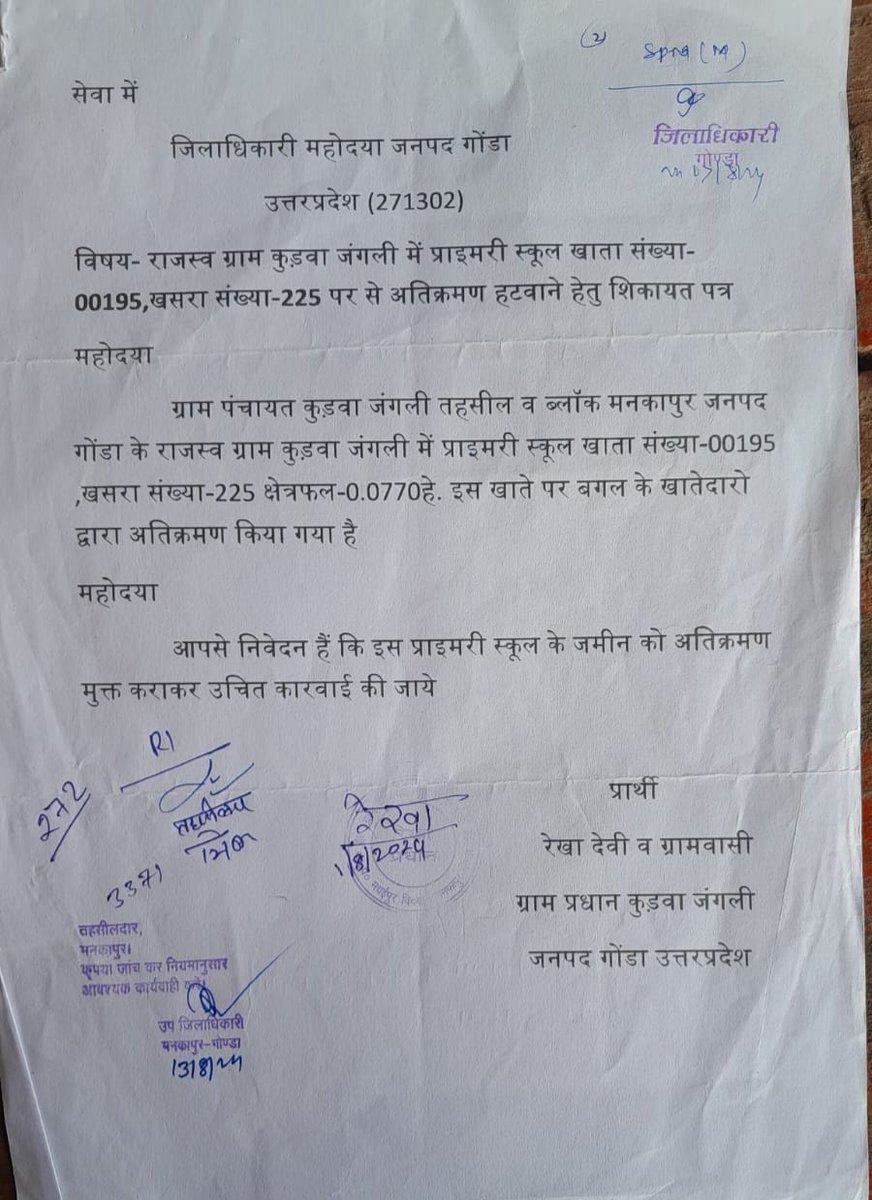 सेवा में
जिलाधिकारी
गोण्डा
जिलाधिकारी महोदया जनपद गोंडा
उत्तरप्रदेश (271302)
विषय- राजस्व ग्राम कुड़वा जंगली में प्राइमरी स्कूल खाता संख्या-
00195,खसरा संख्या-225 पर से अतिक्रमण हटवाने हेतु शिकायत पत्र
महोदया
ग्राम पंचायत कुड़वा जंगली तहसील व ब्लॉक मनकापुर जनपद
गोंडा के राजस्व ग्राम कुड़वा जंगली में प्राइमरी स्कूल खाता संख्या-00195
,खसरा संख्या-225 क्षेत्रफल-0.0770हे. इस खाते पर बगल के खातेदारो
द्वारा अतिक्रमण किया गया है
महोदया
आपसे निवेदन हैं कि इस प्राइमरी स्कूल के जमीन को अतिक्रमण
मुक्त कराकर उचित कारवाई की जाये
RI
272
3371
रेखा
1/8/2024
प्रार्थी
रेखा देवी व ग्रामवासी
ग्राम प्रधान कुड़वा जंगली
जनपद गोंडा उत्तरप्रदेश
तहसीलदार,
मनकापुर।
कृपया जांच कर नियमानुसार
आवश्यक कार्यवाही
उप जिलाधिकारी
मनकापुर-गोण्डा
13/8/24